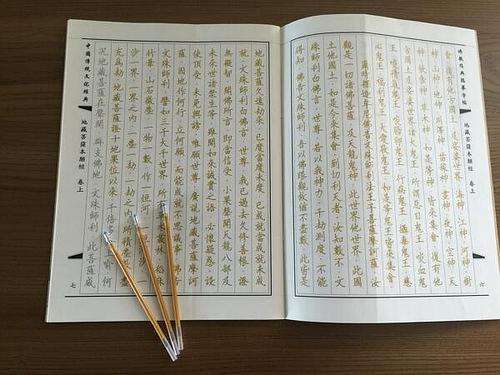 地藏菩薩本願經 卷上
六
會 復有他方國土 及娑婆世界 海神 江神 河神 樹
神 山神 地神 川澤神 苗稼神 晝神 夜神 空神 天
神 飲食神 草木神 如是等神 皆來集會 復有他
方國土 及娑婆世界 諸大鬼王 所謂惡目鬼王 噉血鬼
王 噉精氣鬼王 噉胎卵鬼王 行病鬼王 攝毒鬼王
慈心鬼王 福利鬼王 大愛敬鬼王 如是等鬼王 皆來集會
爾時釋迦牟尼佛 告文殊師利法王子菩薩摩訶薩 汝
觀是一切諸佛菩薩 及天龍鬼神 此世界 他世界 此國
土 他國土 如是今來集會 到忉利天者 汝知數不 文
殊師利白佛言 世尊 若以我神力 千劫測度 不能
得知 佛告文殊師利 吾以佛眼觀故 猶不盡數 此皆是
地藏菩薩久遠劫來 已度 當度 未度 已成就 當成就 未成
就 文殊師利白佛言 世尊 我已過去久修善根 證
無礙智 聞佛所言 即當信受 小果聲聞 天龍八部 及
未來世諸眾生等 雖聞如來誠實之語 必懷疑惑 設
使頂受 未免興謗 唯願世尊 廣說地藏菩薩摩訶
薩 因地作何行 立何願 而能成就不思議事 佛告
文殊師利 譬如三千大千世界 所有草木叢林 稻麻
竹葦 山石微塵 一物一數 作一恒河
沙 一界 一界之內 一塵一劫 一劫之內 所積塵數 盡
充為劫 地藏菩薩證十地果位以來 千倍多於上喻 何
況地藏菩薩在聲聞 辟支佛地 文殊師利 此菩薩威
中國傳統文化經典
地藏菩薩本願經 卷上
七